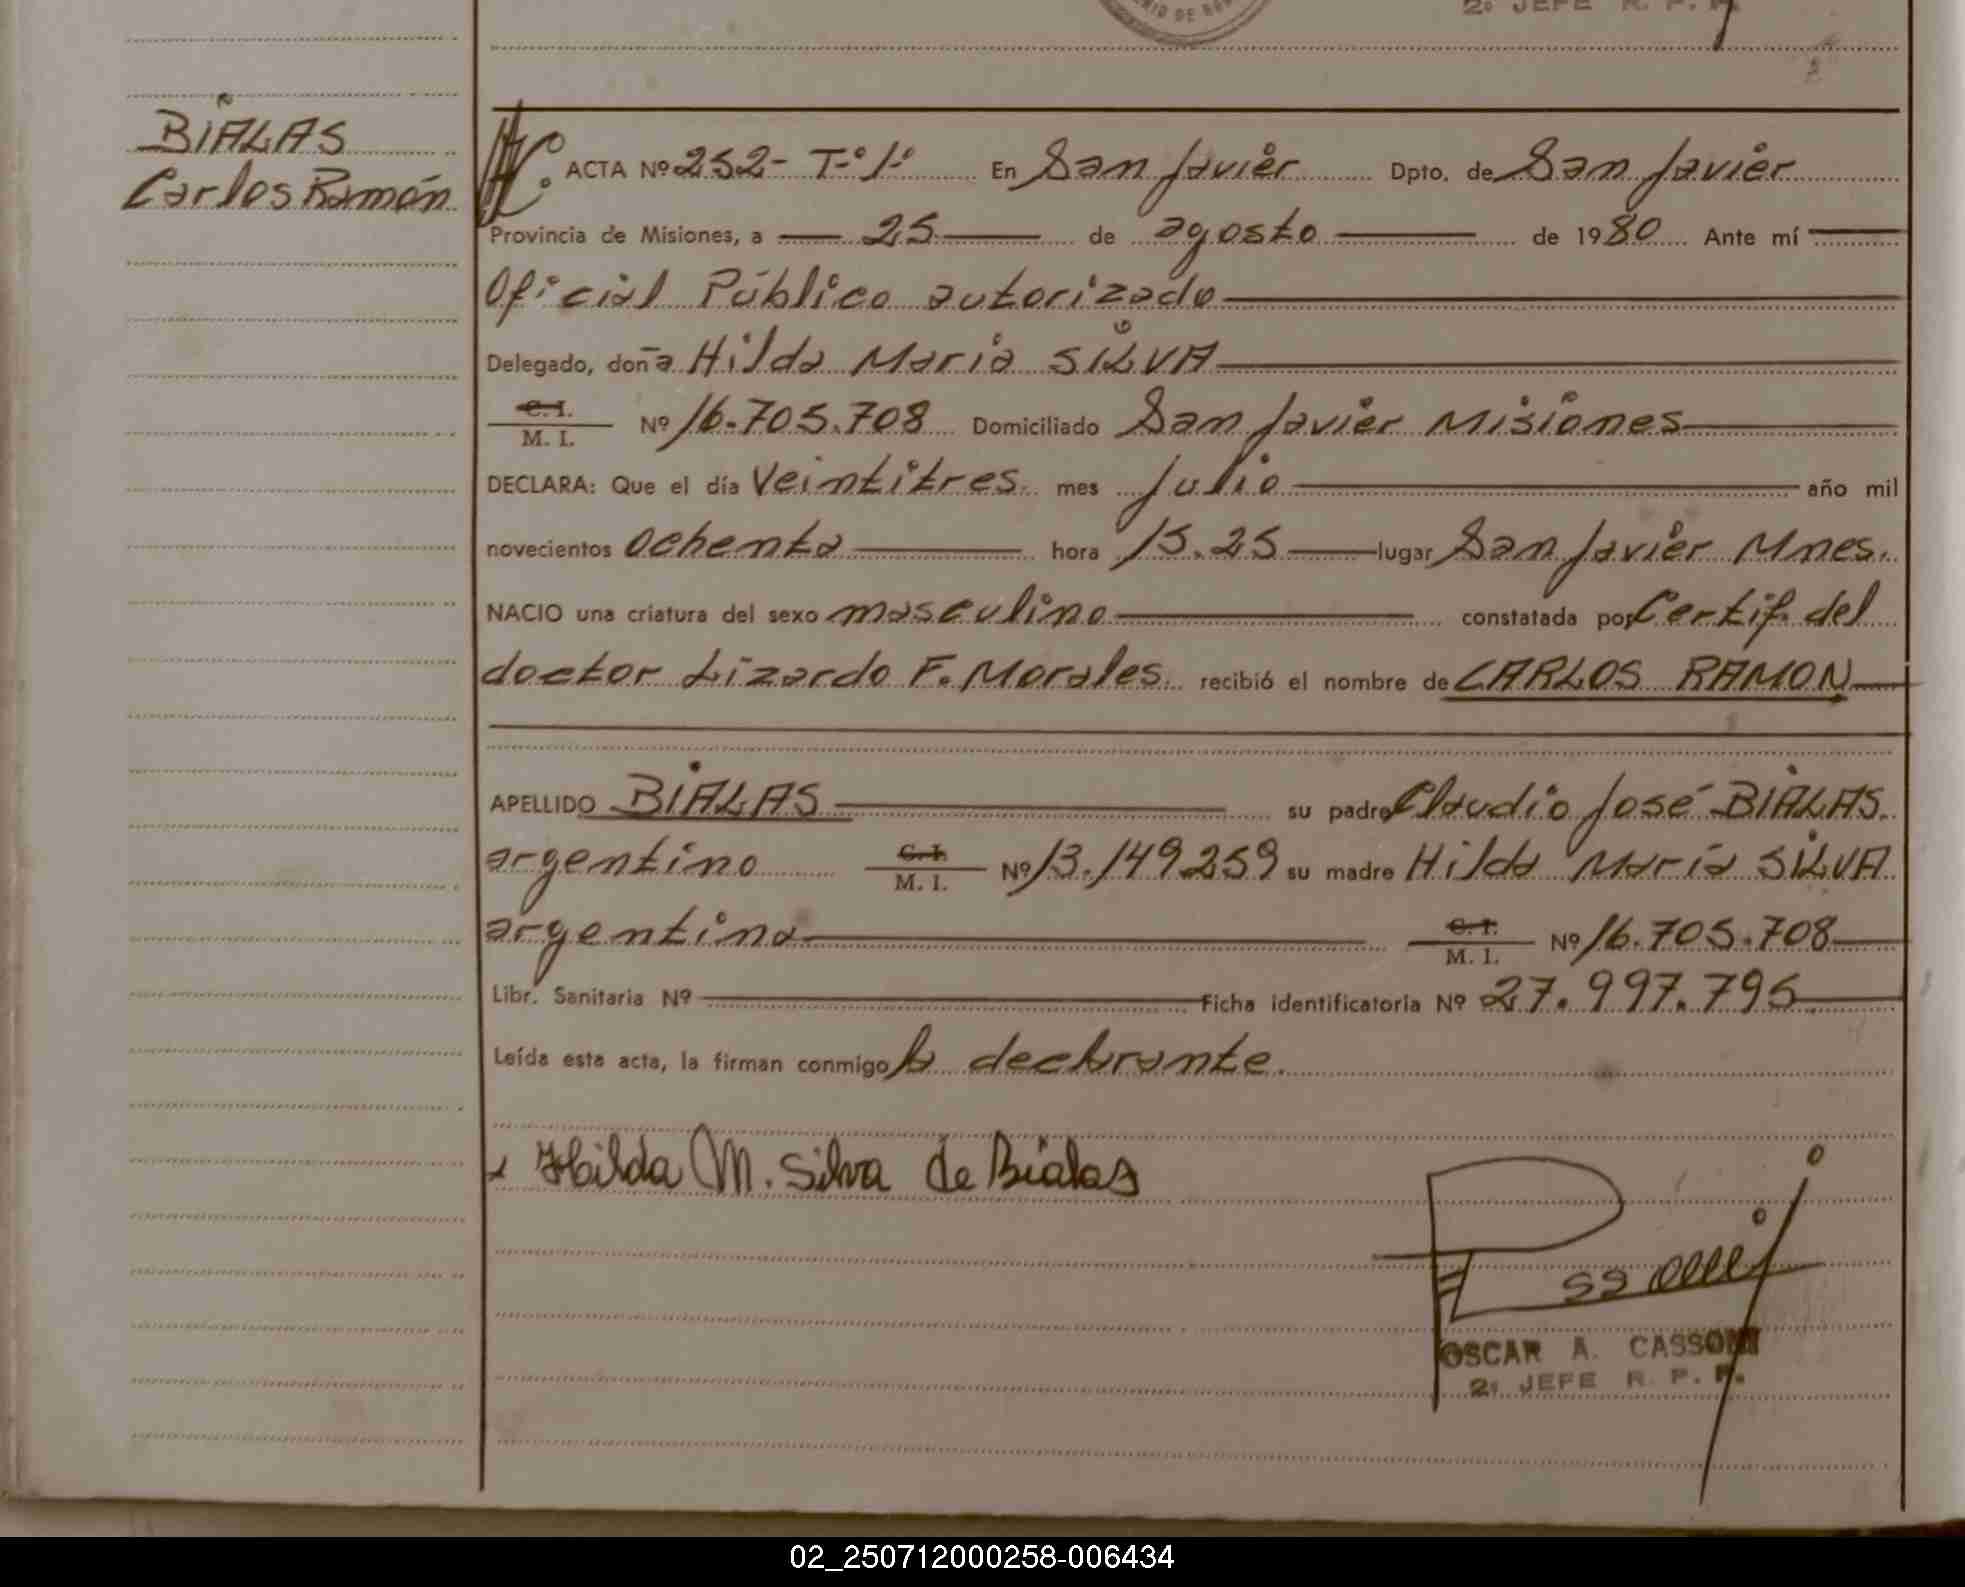 2º JEFE R. P. P.
BIALAS
Carlos Ramón
ACTA Nº 252- Tº 1º En San Javier Dpto. de San Javier
Provincia de Misiones, a 25 de agosto de 1980 Ante mí
Oficial Público autorizado
Delegado, doña Hilda Maria SILVA
C. I.
M. I. Nº 16.705.708 Domiciliado San Javier Misiones
DECLARA: Que el día Veintitres mes Julio año mil
novecientos ochenta hora 15.25 lugar San Javier Mnes.
NACIO una criatura del sexo masculino constatada por Certif. del
doctor Lizardo F. Morales recibió el nombre de CARLOS RAMON
APELLIDO BIALAS su padre Claudio José BIALAS.
argentino C. I. M. I. Nº 13.149.259 su madre Hilda María SILVA
argentina C. I. M. I. Nº 16.705.708
Libr. Sanitaria Nº Ficha identificatoria Nº 27.997.795
Leída esta acta, la firman conmigo la declarante.
Hilda M. Silva de Bialas
OSCAR A. CASSONI
2º JEFE R. P. P.
02_250712000258-006434